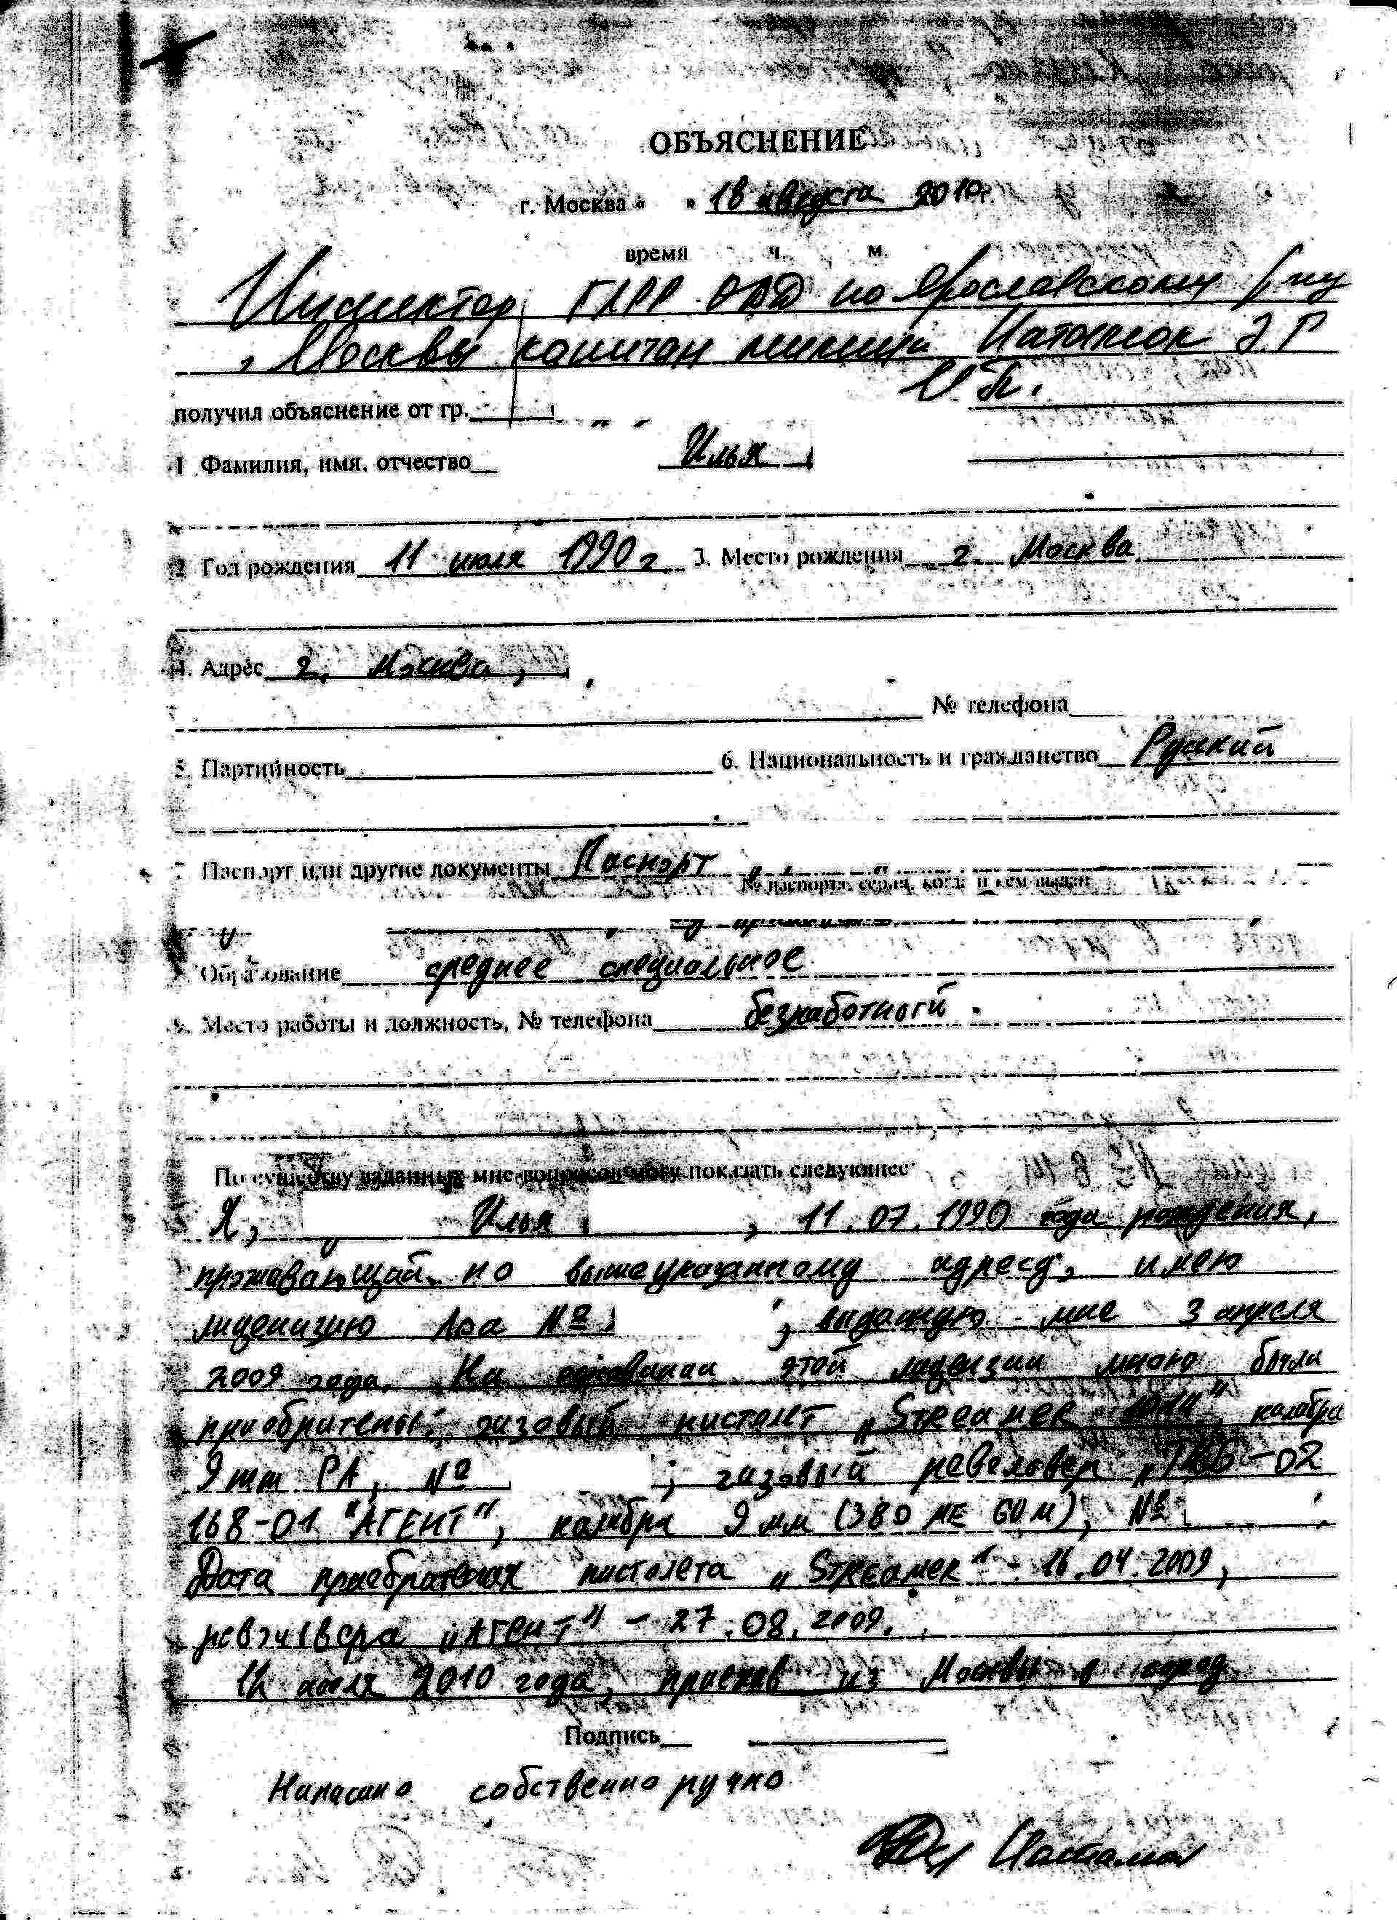 ОБЪЯСНЕНИЕ
г. Москва " " 18 августа 2010г.
время ч. м.
Инспектор ГЛРР ОВД по Ярославскому р-ну
г. Москвы капитан милиции
получил объяснение от гр. И.П.
1 Фамилия, имя, отчество Илья
2 Год рождения 11 июля 1990 г 3. Место рождения г. Москва
4. Адрес г. Москва,
№ телефона
5. Партийность 6. Национальность и гражданство Руский
7 Паспорт или другие документы Паспорт
№ паспорта, серия, когда и кем выдан
8. Образование среднее специальное
9. Место работы и должность, № телефона безработный.
По существу заданных мне вопросов могу показать следующее:
Я, Илья , 11.07.1990 года рождения,
проживающий по вышеуказанному адресу, имею
лицензию ЛОа № , выданную мне 3 апреля
2009 года. На основании этой лицензии мною были
приобритены: газовый пистолет „Streamer", калибра
9 mm РА, № ; газовый револьвер -02
168-01 "АГЕНТ", калибра 9 мм (380 МЕ GUM), №
Дата приобритения пистолета „Streamer" - 16.04.2009,
револьвера „АГЕНТ" - 27.08.2009.
11 июля 2010 года, приехав из Москвы в город
Подпись
Написано собственноручно